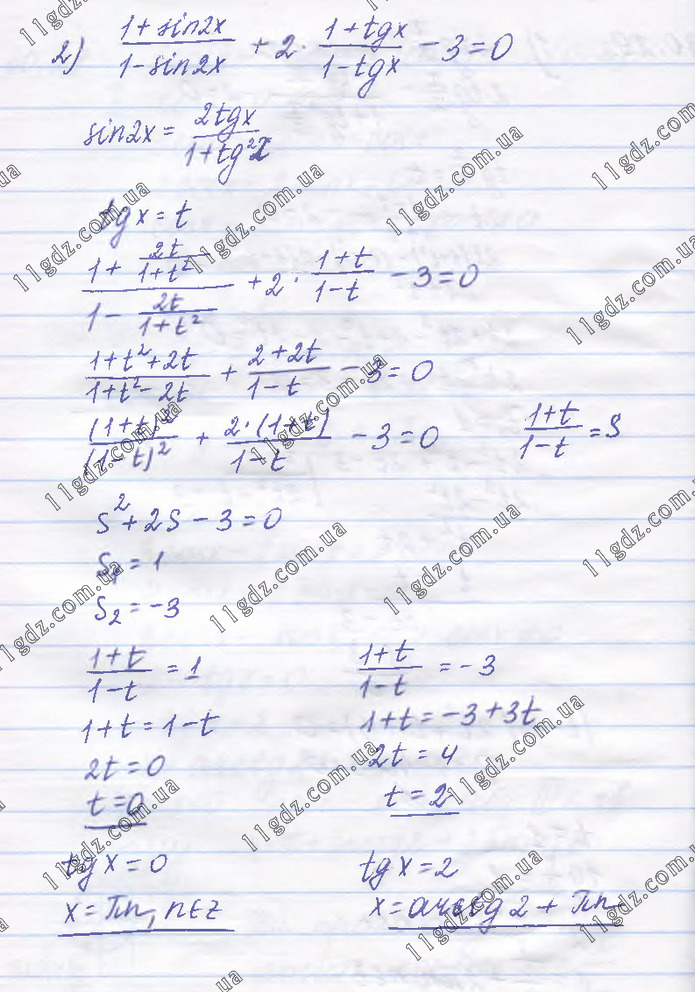 2) \frac{1+sin2x}{1-sin2x} + 2 · \frac{1+tgx}{1-tgx} - 3 = 0
sin2x = \frac{2tgx}{1+tg^2x}
tgx = t
\frac{1+\frac{2t}{1+t^2}}{1-\frac{2t}{1+t^2}} + 2 · \frac{1+t}{1-t} - 3 = 0
\frac{1+t^2+2t}{1+t^2-2t} + \frac{2+2t}{1-t} - 3 = 0
\frac{(1+t)^2}{(1-t)^2} + \frac{2·(1+t)}{1-t} - 3 = 0 \frac{1+t}{1-t} = S
S^2 + 2S - 3 = 0
S_1 = 1
S_2 = -3
\frac{1+t}{1-t} = 1
1+t = 1-t
2t = 0
t = 0
tgx = 0
x = πn, n∈Z
\frac{1+t}{1-t} = -3
1+t = -3+3t
2t = 4
t = 2
tgx = 2
x = arctg2 + πn
11gdz.com.ua